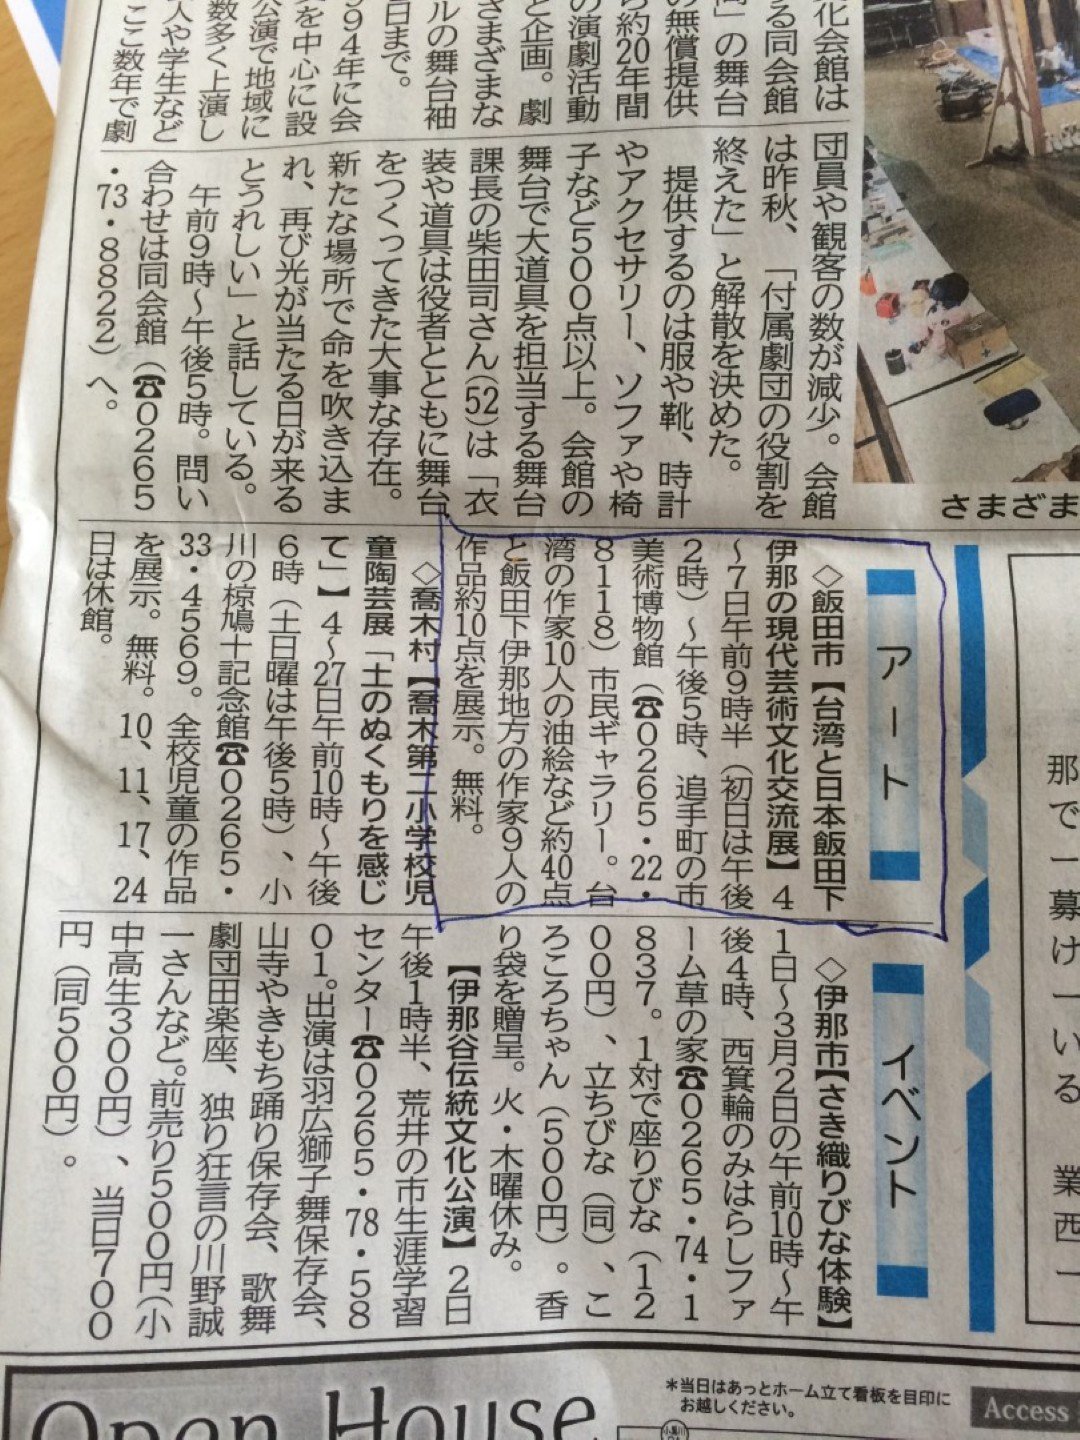 化会館は
る同会館
」の舞台
の無償提供
ら約20年間
の演劇活動
と企画。劇
さまざまな
ルの舞台袖
日まで。
994年に会
を中心に設
公演で地域に
数多く上演し
人や学生など
ここ数年で劇
団員や観客の数が減少。会館
は昨秋、「付属劇団の役割を
終えた」と解散を決めた。
提供するのは服や靴、時計
やアクセサリー、ソファや椅
子など500点以上。会館の
舞台で大道具を担当する舞台
課長の柴田司さん(52)は「衣
装や道具は役者とともに舞台
をつくってきた大事な存在。
新たな場所で命を吹き込ま
れ、再び光が当たる日が来る
とうれしい」と話している。
午前9時~午後5時。問い
合わせは同会館(☎0265
・73・8822)へ。
さまざま
アート
◇飯田市【台湾と日本飯田下
伊那の現代芸術文化交流展】4
~7日午前9時半(初日は午後
2時)~午後5時、追手町の市
美術博物館(☎0265・22・
8118)市民ギャラリー。台
湾の作家10人の油絵など約40点
と飯田下伊那地方の作家9人の
作品約10点を展示。無料。
◇喬木村【喬木第二小学校児
童陶芸展「土のぬくもりを感じ
て」】4~27日午前10時~午後
6時(土日曜は午後5時)、小
川の椋鳩十記念館☎0265・
33・4569。全校児童の作品
を展示。無料。10、11、17、24
日は休館。
イベント
◇伊那市【さき織りびな体験】
1日~3月2日の午前10時~午
後4時、西箕輪のみはらしファ
ーム草の家☎0265・74・1
837。1対で座りびな(12
00円)、立ちびな(同)、こ
ろころちゃん(500円)。香
り袋を贈呈。火・木曜休み。
【伊那谷伝統文化公演】2日
午後1時半、荒井の市生涯学習
センター☎0265・78・58
01。出演は羽広獅子舞保存会、
山寺やきもち踊り保存会、歌舞
劇団田楽座、独り狂言の川野誠
一さんなど。前売り500円(小
中高生300円)、当日700
円(同500円)。
那
で一
募
け一
いる
業
西
一
Open House
*当日はあっとホーム立て看板を目印に
お越しください。
Access